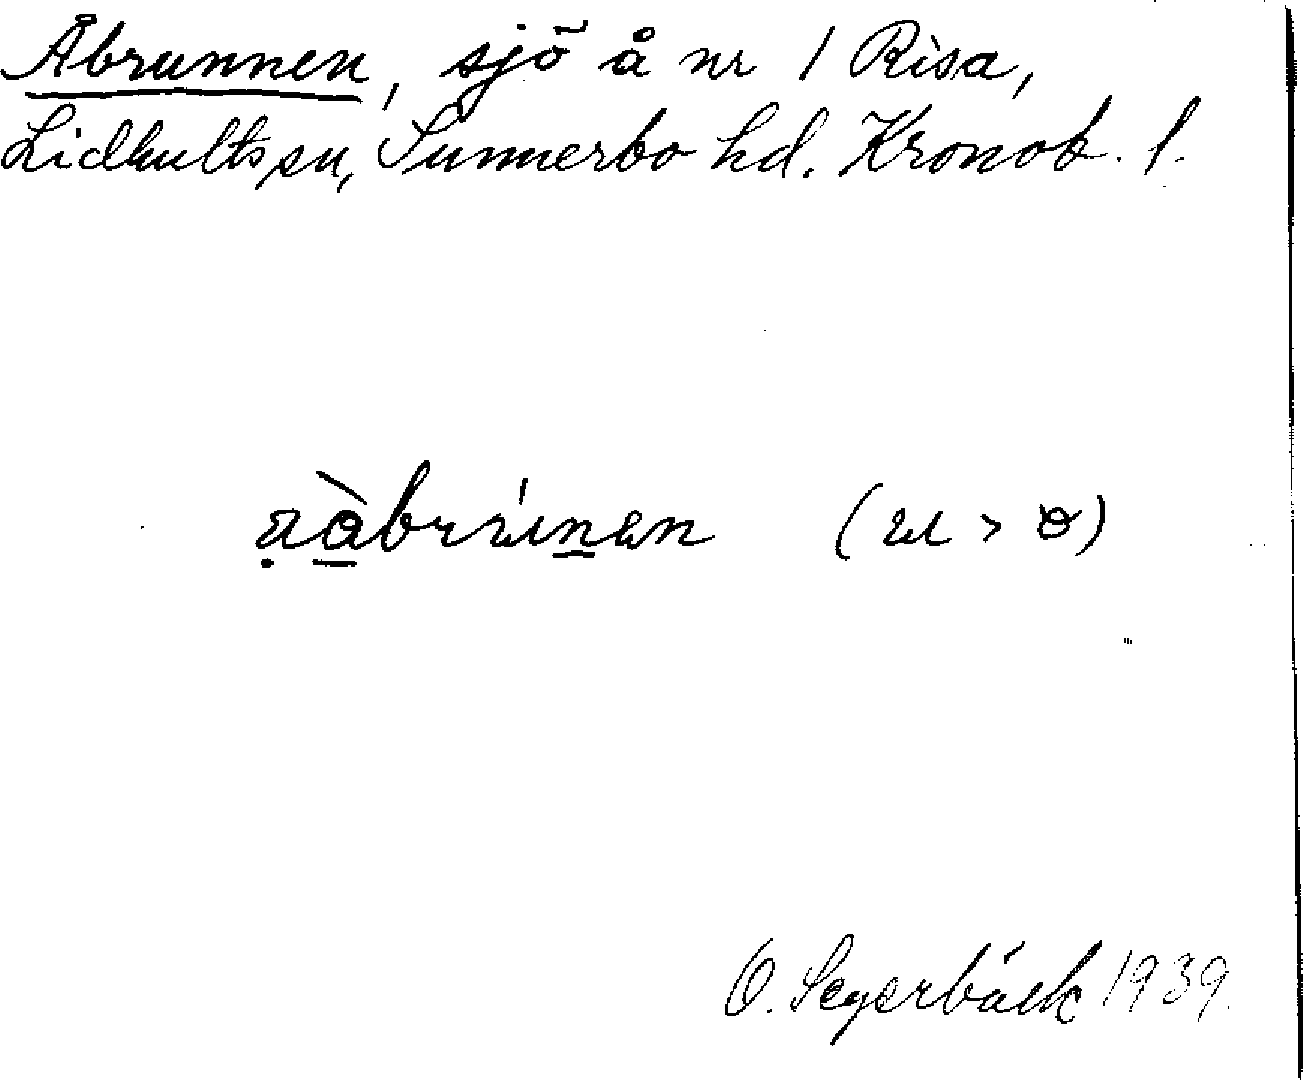 Åbrunnen, sjö å nr 1 Risa,
Lidhults sn, Sunnerbo hd. Kronob. l.
aàbrúnen (u > ɵ)
O. Segerbäck 1939.